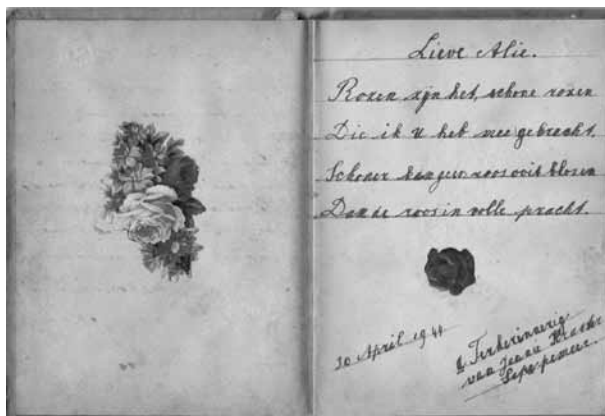 Lieve Alie.
Rozen zijn het, schone rozen
Die ik u heb mee gebracht.
Schoner kan geen roos ooit blozen
Dan de roos in volle pracht.
30 April 1941
Ter herinnering
van Jennie